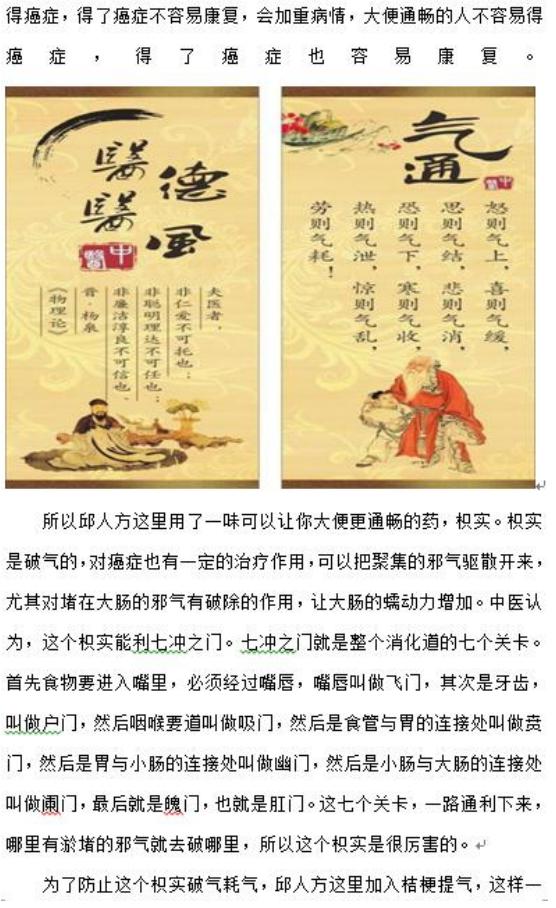 得癌症，得了癌症不容易康复，会加重病情，大便通畅的人不容易得
癌症，得了癌症也容易康复。
醫德
醫風
中醫
夫医者，
非仁爱不可托也；
非聪明理达不可任也；
非廉洁淳良不可信也。
晋·杨泉
《物理论》
气通
中醫
怒则气上，喜则气缓，
思则气结，悲则气消，
恐则气下，寒则气收，
热则气泄，惊则气乱，
劳则气耗！
所以邱人方这里用了一味可以让你大便更通畅的药，枳实。枳实
是破气的，对癌症也有一定的治疗作用，可以把聚集的邪气驱散开来，
尤其对堵在大肠的邪气有破除的作用，让大肠的蠕动力增加。中医认
为，这个枳实能利七冲之门。七冲之门就是整个消化道的七个关卡。
首先食物要进入嘴里，必须经过嘴唇，嘴唇叫做飞门，其次是牙齿，
叫做户门，然后咽喉要道叫做吸门，然后是食管与胃的连接处叫做贲
门，然后是胃与小肠的连接处叫做幽门，然后是小肠与大肠的连接处
叫做阑门，最后就是魄门，也就是肛门。这七个关卡，一路通利下来，
哪里有淤堵的邪气就去破哪里，所以这个枳实是很厉害的。
为了防止这个枳实破气耗气，邱人方这里加入桔梗提气，这样一